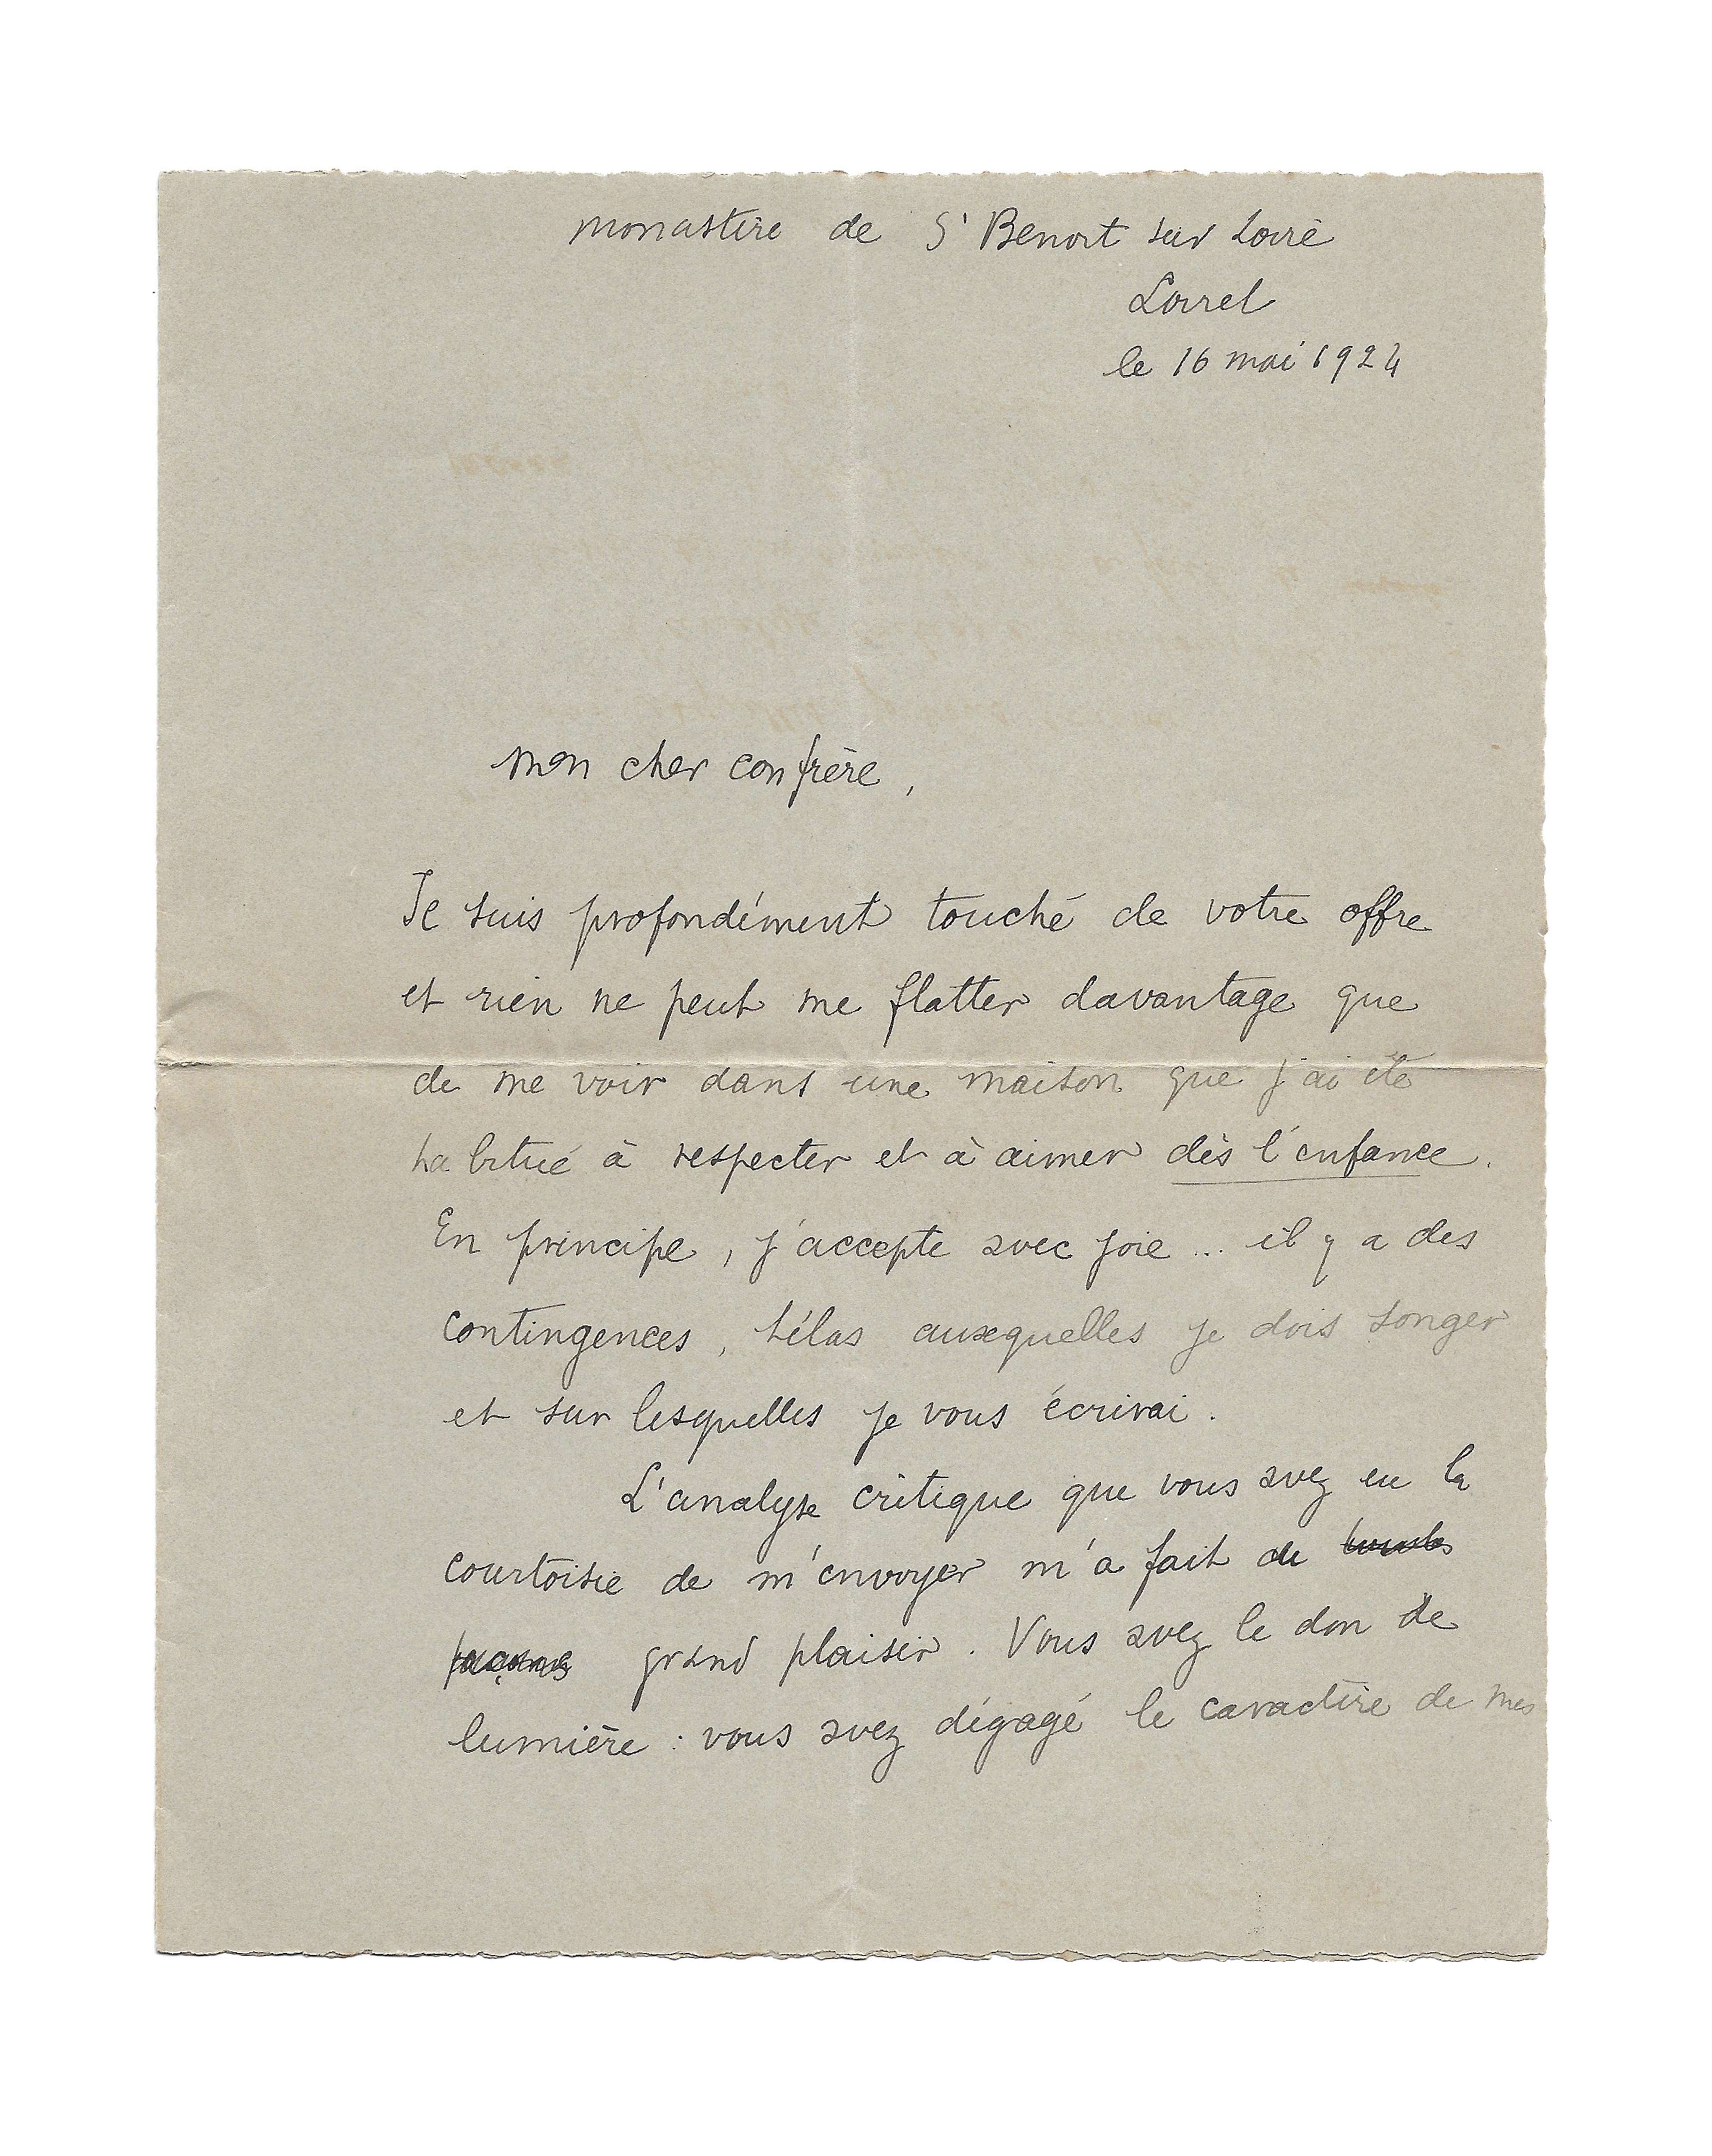 monastère de St Benoit sur Loire
Loiret
le 16 mai 1924
mon cher confrère,
Je suis profondément touché de votre offre
et rien ne peut me flatter davantage que
de me voir dans une maison que j'ai été
habitué à respecter et à aimer dès l'enfance.
En principe, j'accepte avec joie... il y a des
contingences, hélas auxquelles je dois songer
et sur lesquelles je vous écrirai.
L'analyse critique que vous avez eu la
courtoisie de m'envoyer m'a fait de
grand plaisir. Vous avez le don de
lumière : vous avez dégagé le caractère de mes